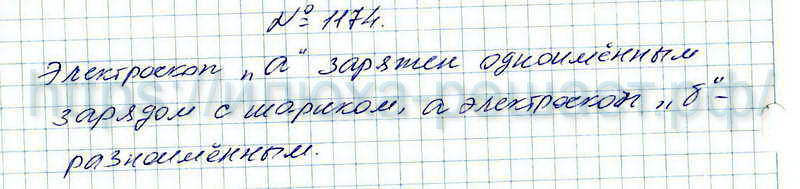 № 1174.
Электроскоп „а“ заряжен одноимённым
зарядом с шариком, а электроскоп „б“ –
разноимённым.